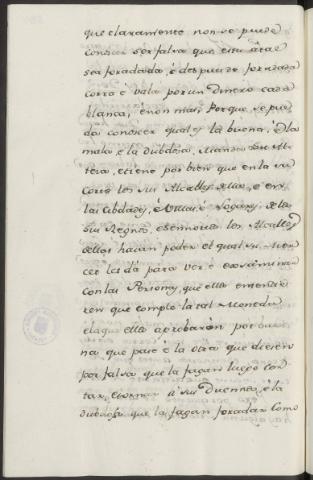 que claramente non se puede
conocer ser falsa que esta atal
sea foradada, é despues de foradada
corra é vala por un dinero cada
blanca, é non mas. Porque se pue-
da conocer qual es la buena, é la
mala, é la dubdosa, Manda su Al-
teza, é tiene por bien que en la su
Corte los sus Alcalles della, é en
las Cibdades, é Villas, é Logares de los
sus Regnos, é Sennorios los Alcalles
dellos hayan poder el qual su Mer-
ced les dá para ver é examinar
con las Personas, que ellos entendie-
ren que cumple la tal Moneda
é la que ellos aprobaren por bue-
na que pase é la otra que dixeren
por falsa que la fagan luego cor-
tar, é tornar á sus Duennos, é la
dubdosa que la fagan foradar como